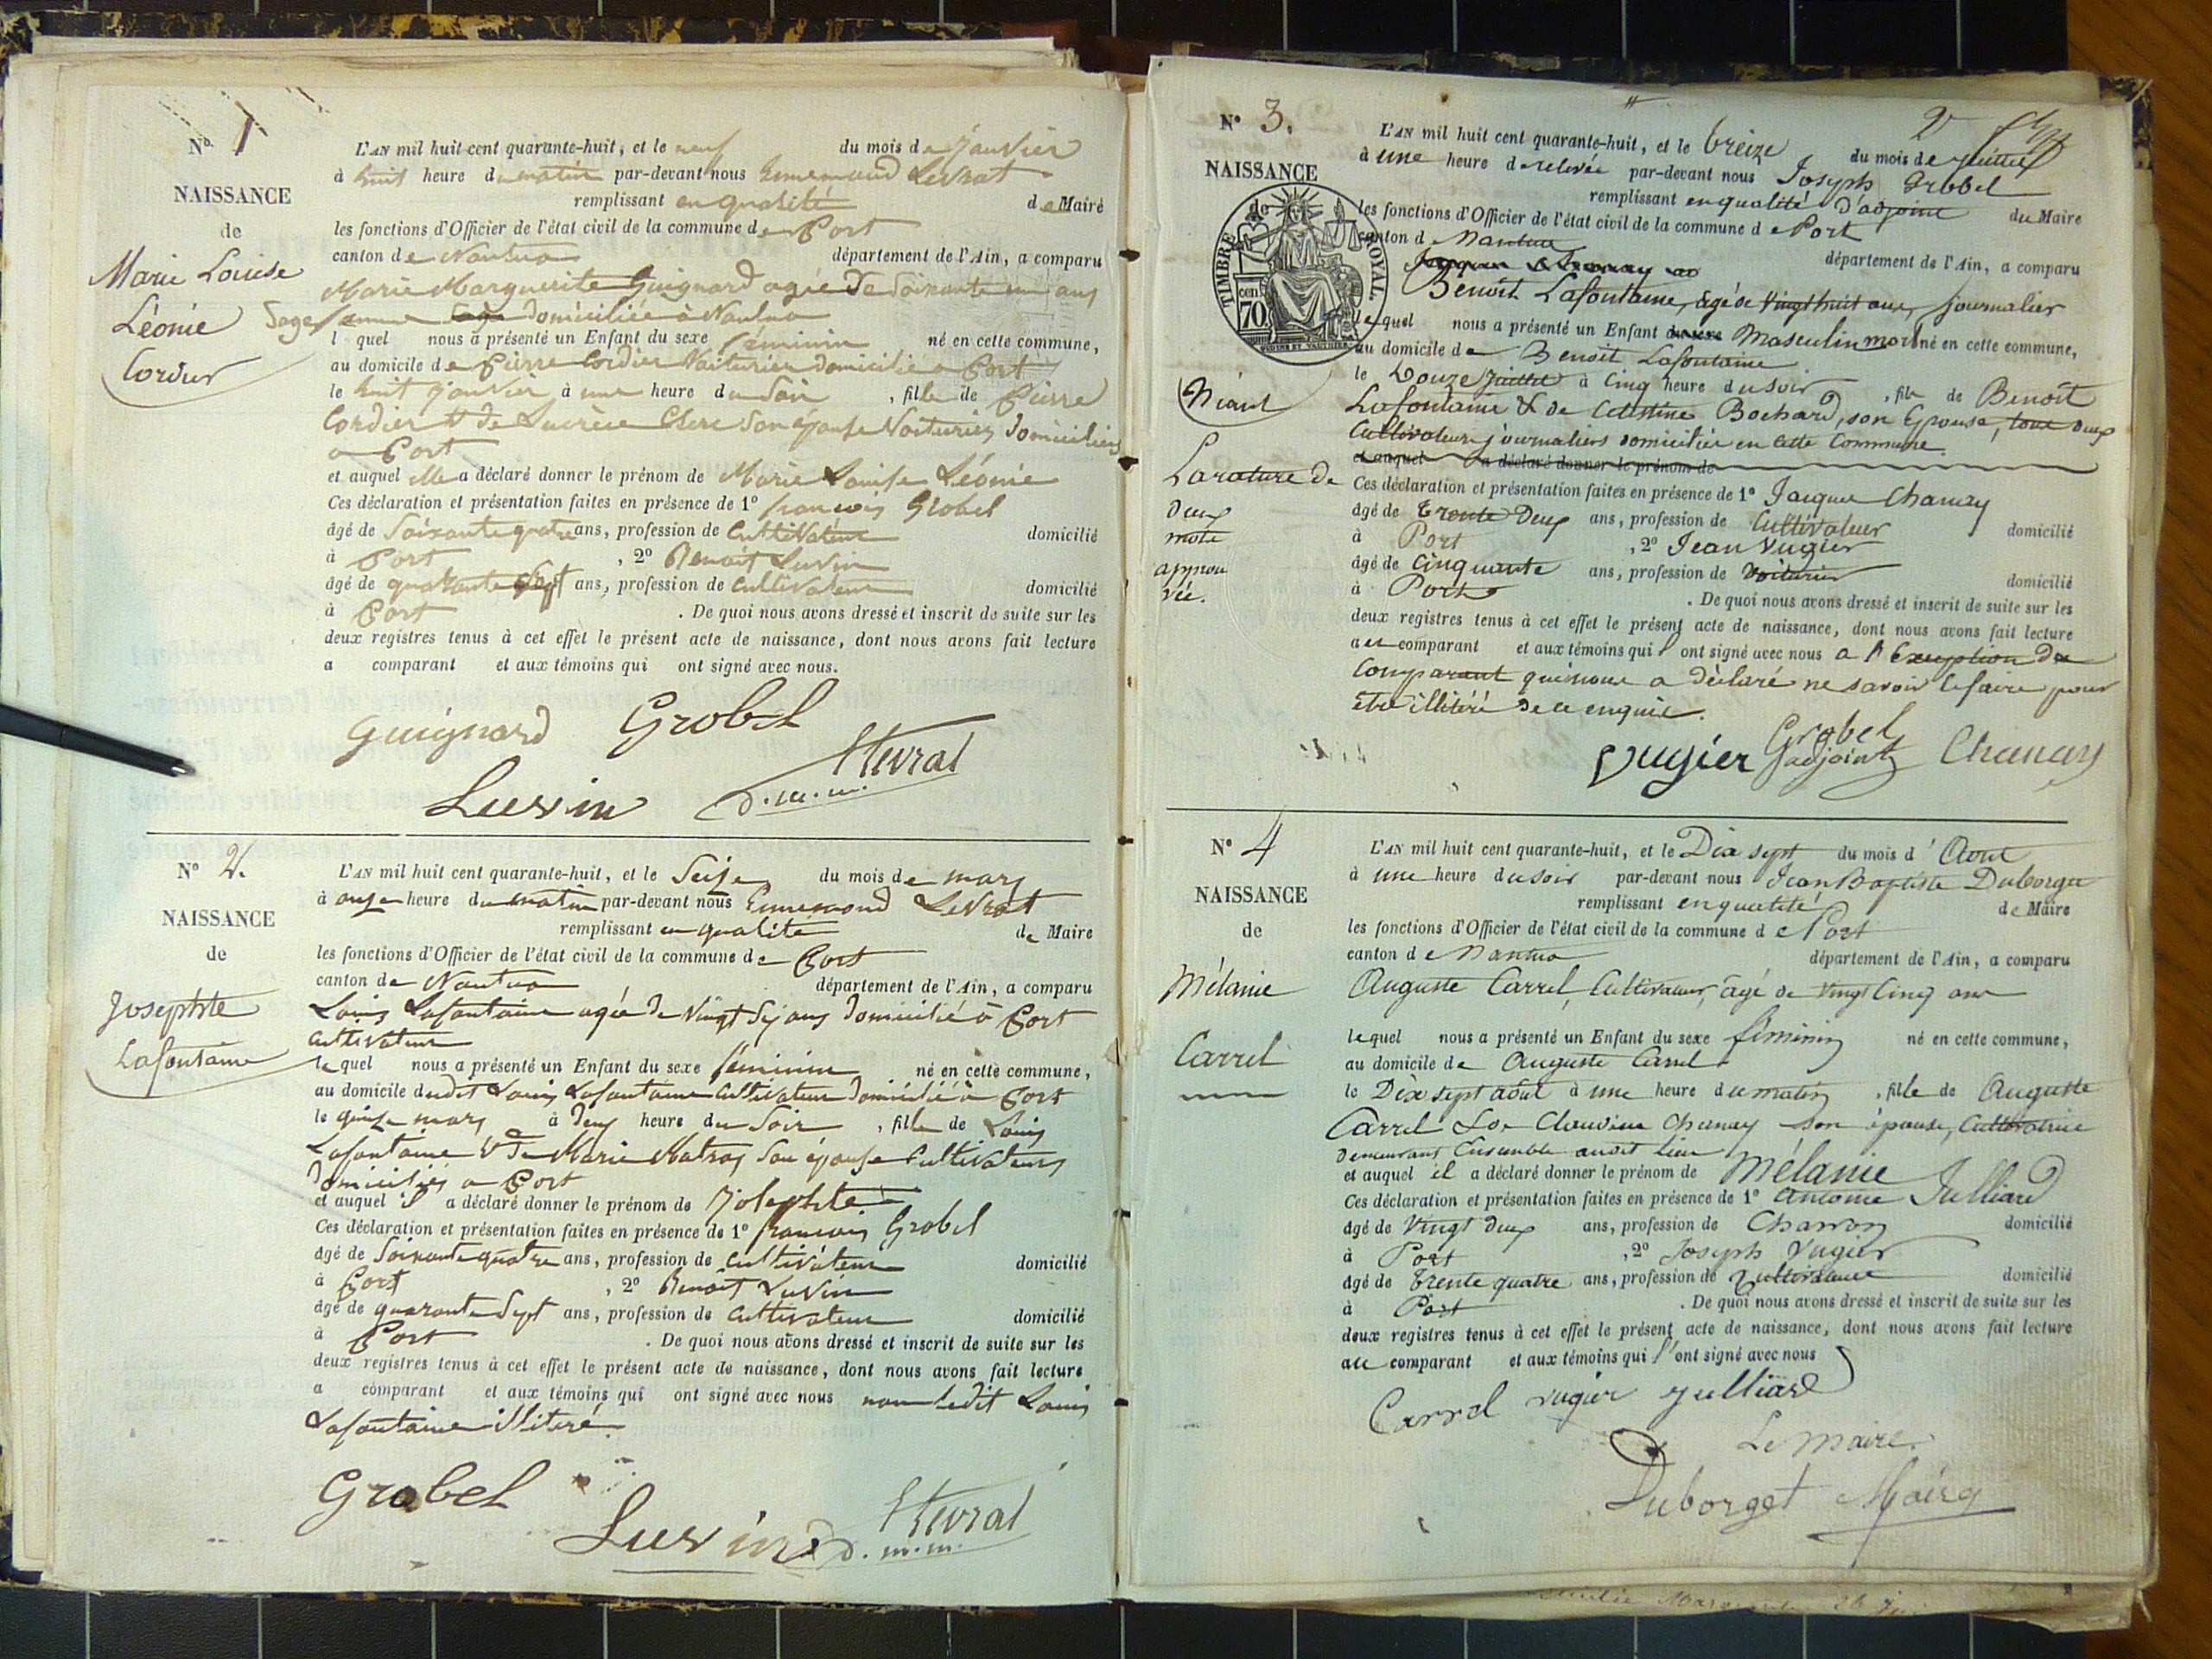 N° 1
NAISSANCE
de
Marie Louise
Léonie
Cordier
L'AN mil huit cent quarante-huit, et le neuf du mois de Janvier
à huit heure du matin par-devant nous Ennemond Levrat
remplissant en qualité de Maire
les fonctions d'Officier de l'état civil de la commune de Port
canton de Nantua département de l'Ain, a comparu
Marie Marguerite Guignard agée de Soixante un ans
Sage femme domiciliée à Nantua
l quel nous a présenté un Enfant du sexe féminin né en cette commune,
au domicile de Pierre Cordier Voiturier domicilié a Port
le huit janvier à une heure du Soir, fille de Pierre
Cordier & de Lucrèce Clerc Son épouse Voituriers domiciliés
a Port
et auquel elle a déclaré donner le prénom de Marie Louise Léonie
Ces déclaration et présentation faites en présence de 1° francois Grobel
âgé de Soixante quatre ans, profession de Cultivateur domicilié
à Port, 2° Benoit Luvin
âgé de quarante Sept ans, profession de Cultivateur domicilié
à Port. De quoi nous avons dressé et inscrit de suite sur les
deux registres tenus à cet effet le présent acte de naissance, dont nous avons fait lecture
a comparant et aux témoins qui ont signé avec nous.
Guignard Grobel
Luvin Levrat
d.m.m.
N° 2.
NAISSANCE
de
Josephte
Lafontaine
L'AN mil huit cent quarante-huit, et le Seize du mois de mars
à onze heure du matin par-devant nous Ennemond Levrat
remplissant en qualité de Maire
les fonctions d'Officier de l'état civil de la commune de Port
canton de Nantua département de l'Ain, a comparu
Louis Lafontaine agée de Vingt Six ans domicilié à Port
Cultivateur
le quel nous a présenté un Enfant du sexe féminin né en cette commune,
au domicile dudit Louis Lafontaine Cultivateur domicilié à Port
le quinze mars à deux heure du Soir, fille de Louis
Lafontaine & de Marie Matras Son épouse Cultivateurs
domiciliés a Port
et auquel il a déclaré donner le prénom de Josephte
Ces déclaration et présentation faites en présence de 1° francois Grobel
âgé de Soixante quatre ans, profession de Cultivateur domicilié
à Port, 2° Benoit Luvin
âgé de quarante Sept ans, profession de Cultivateur domicilié
à Port. De quoi nous avons dressé et inscrit de suite sur les
deux registres tenus à cet effet le présent acte de naissance, dont nous avons fait lecture
a comparant et aux témoins qui ont signé avec nous non ledit Louis
Lafontaine illitéré.
Grobel
Luvin Levrat
d.m.m.
N° 3.
NAISSANCE
de
TIMBRE ROYAL
cen 70
Néant
La rature de
deux
mots
approu
vée.
2
L'AN mil huit cent quarante-huit, et le treize du mois de juillet
à une heure de relevée par-devant nous Joseph Grobel
remplissant en qualité d'adjoint du Maire
les fonctions d'Officier de l'état civil de la commune de Port
canton de Nantua département de l'Ain, a comparu
Benoît Lafontaine, âgé de Vingt huit ans, journalier
lequel nous a présenté un Enfant du sexe Masculin mort né en cette commune,
au domicile de Benoît Lafontaine
le Douze juillet à Cinq heure du soir, fils de Benoît
Lafontaine & de Célestine Bochard, son Epouse, tous deux
Cultivateurs journaliers domiciliés en cette Commune.
et auquel a déclaré donner le prénom de
Ces déclaration et présentation faites en présence de 1° Jacques Chanay
âgé de Trente Deux ans, profession de Cultivateur domicilié
à Port, 2° Jean Vugier
âgé de Cinquante ans, profession de Voiturier domicilié
à Port. De quoi nous avons dressé et inscrit de suite sur les
deux registres tenus à cet effet le présent acte de naissance, dont nous avons fait lecture
au comparant et aux témoins qui l'ont signé avec nous a l'Exception du
Comparant qui nous a dèclaré ne savoir le faire pour
être illitéré de ce enquis.
Vugier Grobel adjoint Chanay
N° 4
NAISSANCE
de
Mélanie
Carrel
L'AN mil huit cent quarante-huit, et le Dix sept du mois d'Aout
à une heure du soir par-devant nous Jean Baptiste Duborget
remplissant en qualité de Maire
les fonctions d'Officier de l'état civil de la commune de Port
canton de Nantua département de l'Ain, a comparu
Auguste Carrel, Cultivateur, âgé de Vingt Cinq ans
lequel nous a présenté un Enfant du sexe féminin né en cette commune,
au domicile de Auguste Carrel
le Dix sept août à une heure du matin, fille de Auguste
Carrel & de Claudine Chanay son épouse, Cultivatrice
demeurant Ensemble audit lieu
et auquel il a déclaré donner le prénom de Mélanie
Ces déclaration et présentation faites en présence de 1° Antoine Julliard
âgé de Vingt deux ans, profession de Charron domicilié
à Port, 2° Joseph Vugier
âgé de Trente quatre ans, profession de Cultivateur domicilié
à Port. De quoi nous avons dressé et inscrit de suite sur les
deux registres tenus à cet effet le présent acte de naissance, dont nous avons fait lecture
au comparant et aux témoins qui l'ont signé avec nous
Carrel Vugier Julliard
Le Maire
Duborget Maire